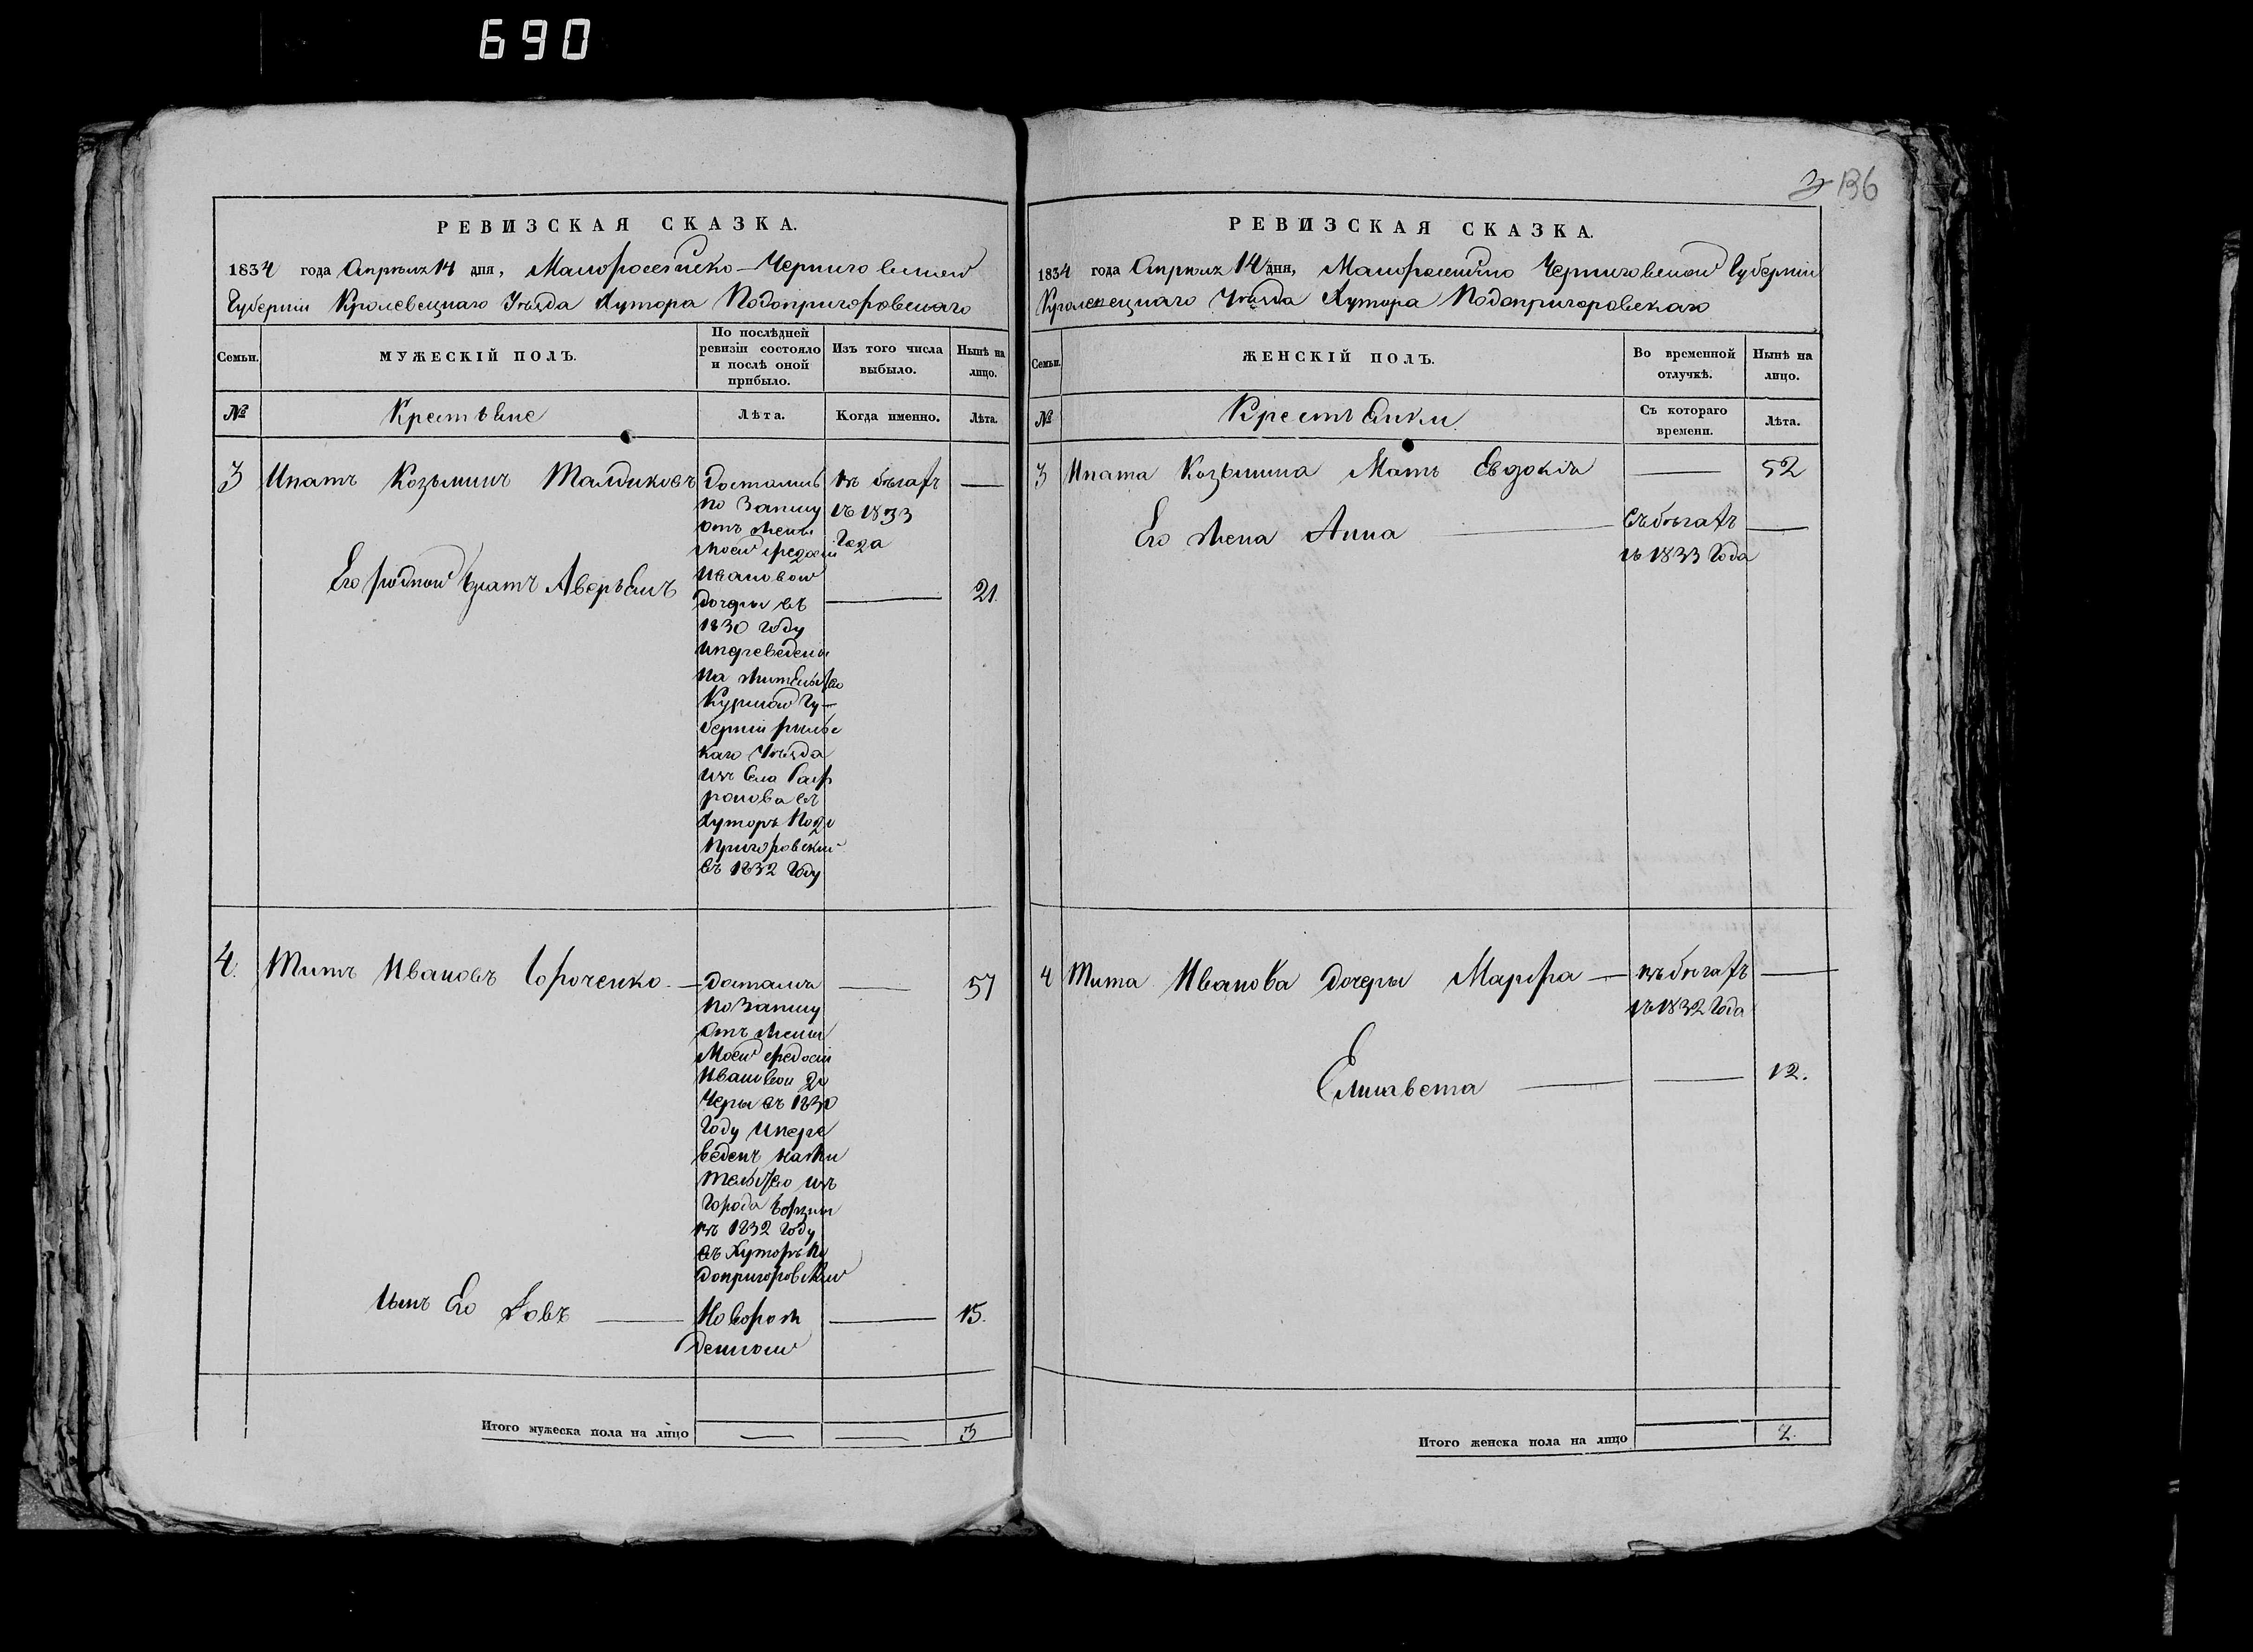 690
3 136
РЕВИЗСКАЯ СКАЗКА.
1834 года Апрѣля 14 дня, Малоросейско-Черниговской
Губерніи Кролевецкаго Уѣзда Хутора Подопригоровскаго
Семьи.
МУЖЕСКІЙ ПОЛЪ.
По послѣдней
ревизіи состояло
и послѣ оной
прибыло.
Изъ того числа
выбыло.
Нынѣ на
лицо.
№
Крестьяне
Лѣта.
Когда именно.
Лѣта.
3 Ипатъ Козьминъ
Достались
по Запису
отъ жены
моей Федосьи
Ивановой
дочери въ
1830 году
и переведены
на жительство
Курской Гу-
берніи рыльс
каго Уѣзда
изъ Села
въ
Хуторъ Подо
пригоровский
въ 1832 Году
въ бѣгахъ
съ 1833
Года
—
Его родной братъ Аверьянъ
—
21.
4. Титъ Ивановъ Сороченко —
Достался
по Запису
отъ жены
Моей Федосьи
Ивановой до
чери въ 1830
Году и пере
веденъ на жи
тельство изъ
Города Борзны
въ 1832 Году
въ Хуторъ По
допригоровский
—
57
Сынъ Его Іовъ —
Новорож
денной
—
15.
Итого мужеска пола на лицо
—
—
3
РЕВИЗСКАЯ СКАЗКА.
1834 года Апрѣля 14 дня, Малоросейско Черниговской Губерніи
Кролевецкаго Уѣзда Хутора Подопригоровскаго
Семьи.
ЖЕНСКІЙ ПОЛЪ.
Во временной
отлучкѣ.
Нынѣ на
лицо.
№
Крестьянки.
Съ котораго
времени.
Лѣта.
3 Ипата Козьмина Мать Евдокія — 52
Его жена Анна — въ бѣгахъ —
съ 1833 Года
4 Тита Иванова дочери Марфа — въ бѣгахъ —
съ 1832 Года
Елисавета — — 12.
Итого женска пола на лицо
2.